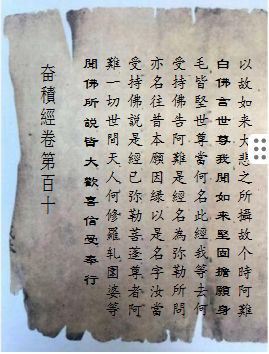 以故如来大悲之所攝故个時阿難
白佛言世尊我聞如来堅固擔願身
毛皆堅世尊當何名此經我等去何
受持佛告阿難是經名為弥勒所問
亦名往昔本願因緣以是名字汝當
受持佛説是經已弥勒菩蓬尊者阿
難一切世間天人何修羅軋圉婆等
聞佛所説皆大歡喜信受奉行
奋積經卷第百十